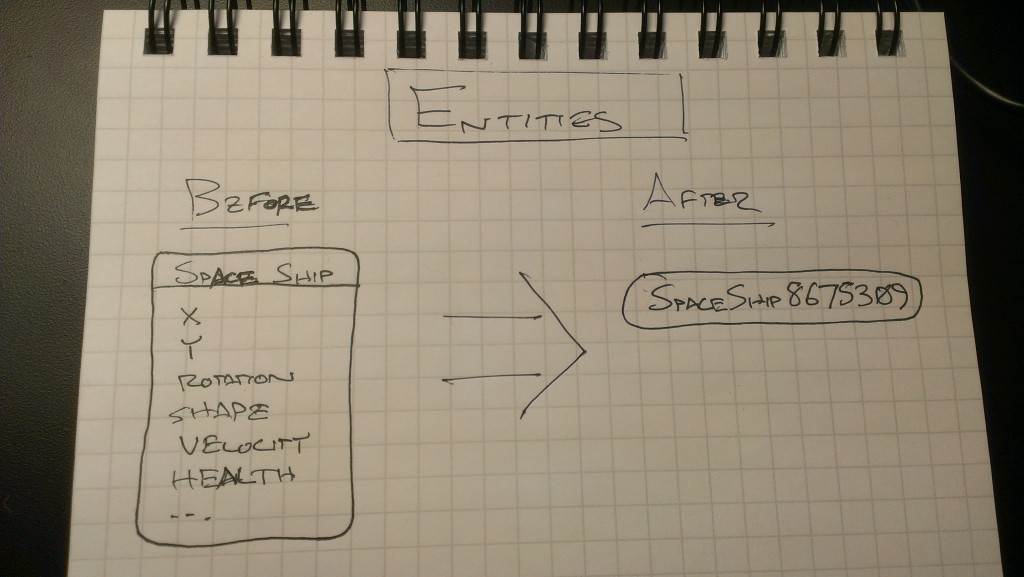 ENTITIES
BEFORE
SPACE SHIP
X
Y
ROTATION
SHAPE
VELOCITY
HEALTH
---.
AFTER
SPACESHIP8675309